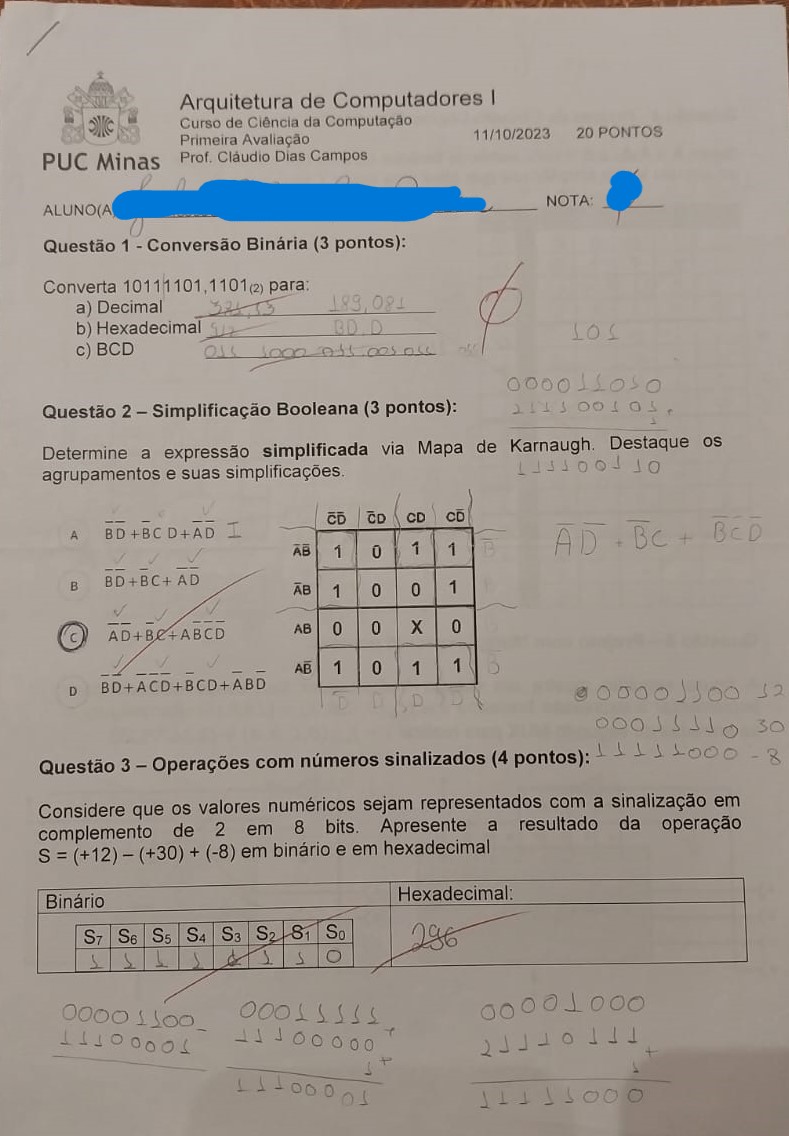 Arquitetura de Computadores I
Curso de Ciência da Computação
Primeira Avaliação 11/10/2023 20 PONTOS
Prof. Cláudio Dias Campos
PUC Minas
ALUNO(A NOTA:
Questão 1 - Conversão Binária (3 pontos):
Converta 10111101,1101(2) para:
a) Decimal 189,081
b) Hexadecimal BD,D
c) BCD
101
000011010
Questão 2 – Simplificação Booleana (3 pontos):
Determine a expressão simplificada via Mapa de Karnaugh. Destaque os
agrupamentos e suas simplificações.
111100110
C̅D̅ C̅D CD CD̅
A B̅D̅+B̅C D+A̅D̅ I A̅B̅ 1 0 1 1 B̅ A̅D̅ + B̅C + B̅C̅D̅
B B̅D̅+B̅C+A̅D̅ A̅B 1 0 0 1
C A̅D̅+B̅C+AB̅C̅D̅ AB 0 0 X 0
D B̅D̅+A̅C̅D̅+B̅CD+A̅BD̅ AB̅ 1 0 1 1 B̅
00001100 12
00011110 30
11111000 -8
Questão 3 – Operações com números sinalizados (4 pontos):
Considere que os valores numéricos sejam representados com a sinalização em
complemento de 2 em 8 bits. Apresente a resultado da operação
S = (+12) – (+30) + (-8) em binário e em hexadecimal
Binário Hexadecimal:
S7 S6 S5 S4 S3 S2 S1 S0 296
1 1 1 1 1 1 0
00001100 00011111 00001000
11100001 11100000 + 11110111 +
1 + 1
11100001 11111000